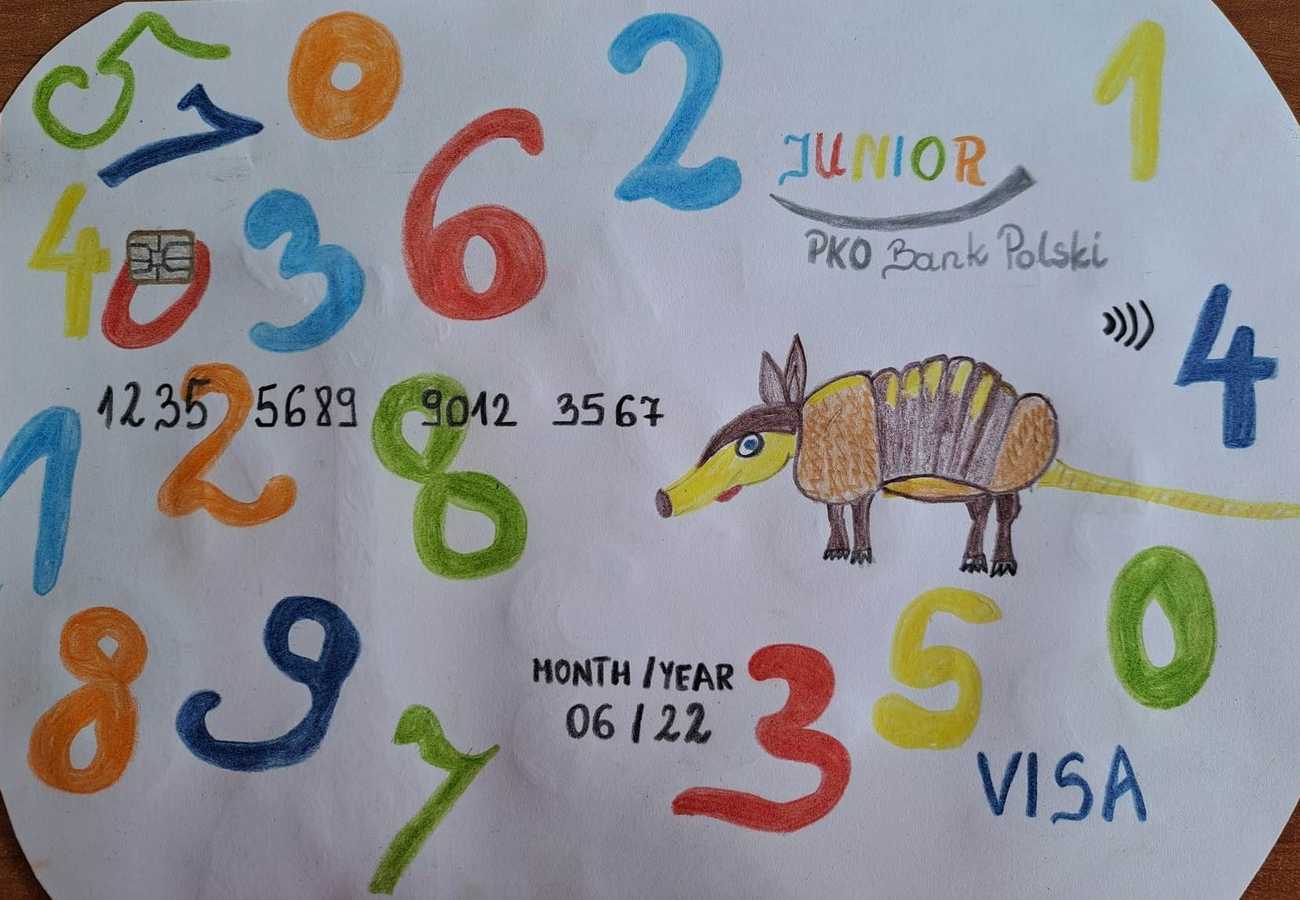 5 0 2 1
7
6
JUNIOR
PKO Bank Polski
4 0 3
4
1235 5689 9012 3567
1 2 8
0
8 9 5
MONTH/YEAR
06/22
3
7
VISA